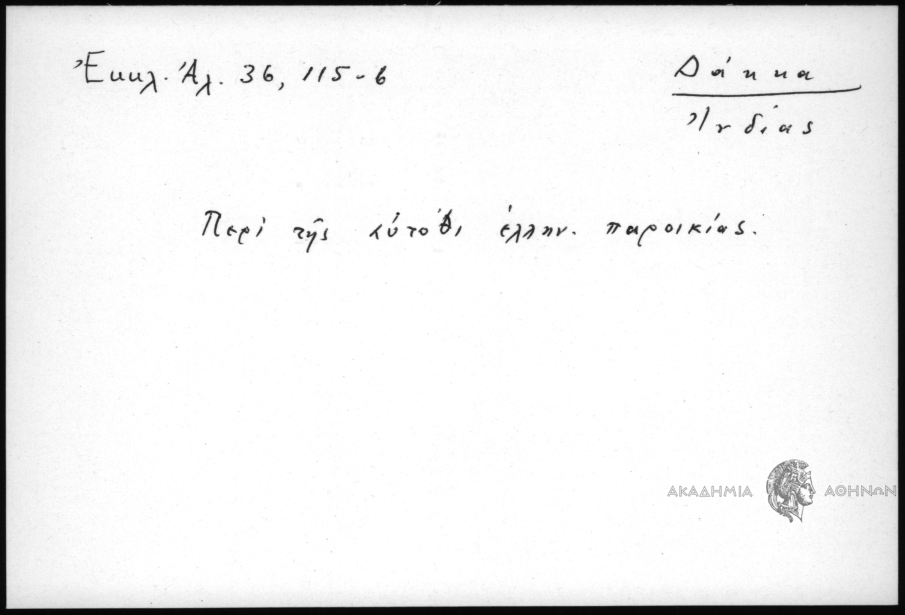 Ἐκκλ. Ἀλ. 36, 115-6
Δάκκα
Ἰνδίας
Περὶ τῆς αὐτόθι ἑλλην. παροικίας.
ΑΚΑΔΗΜΙΑ ΑΘΗΝΩΝ